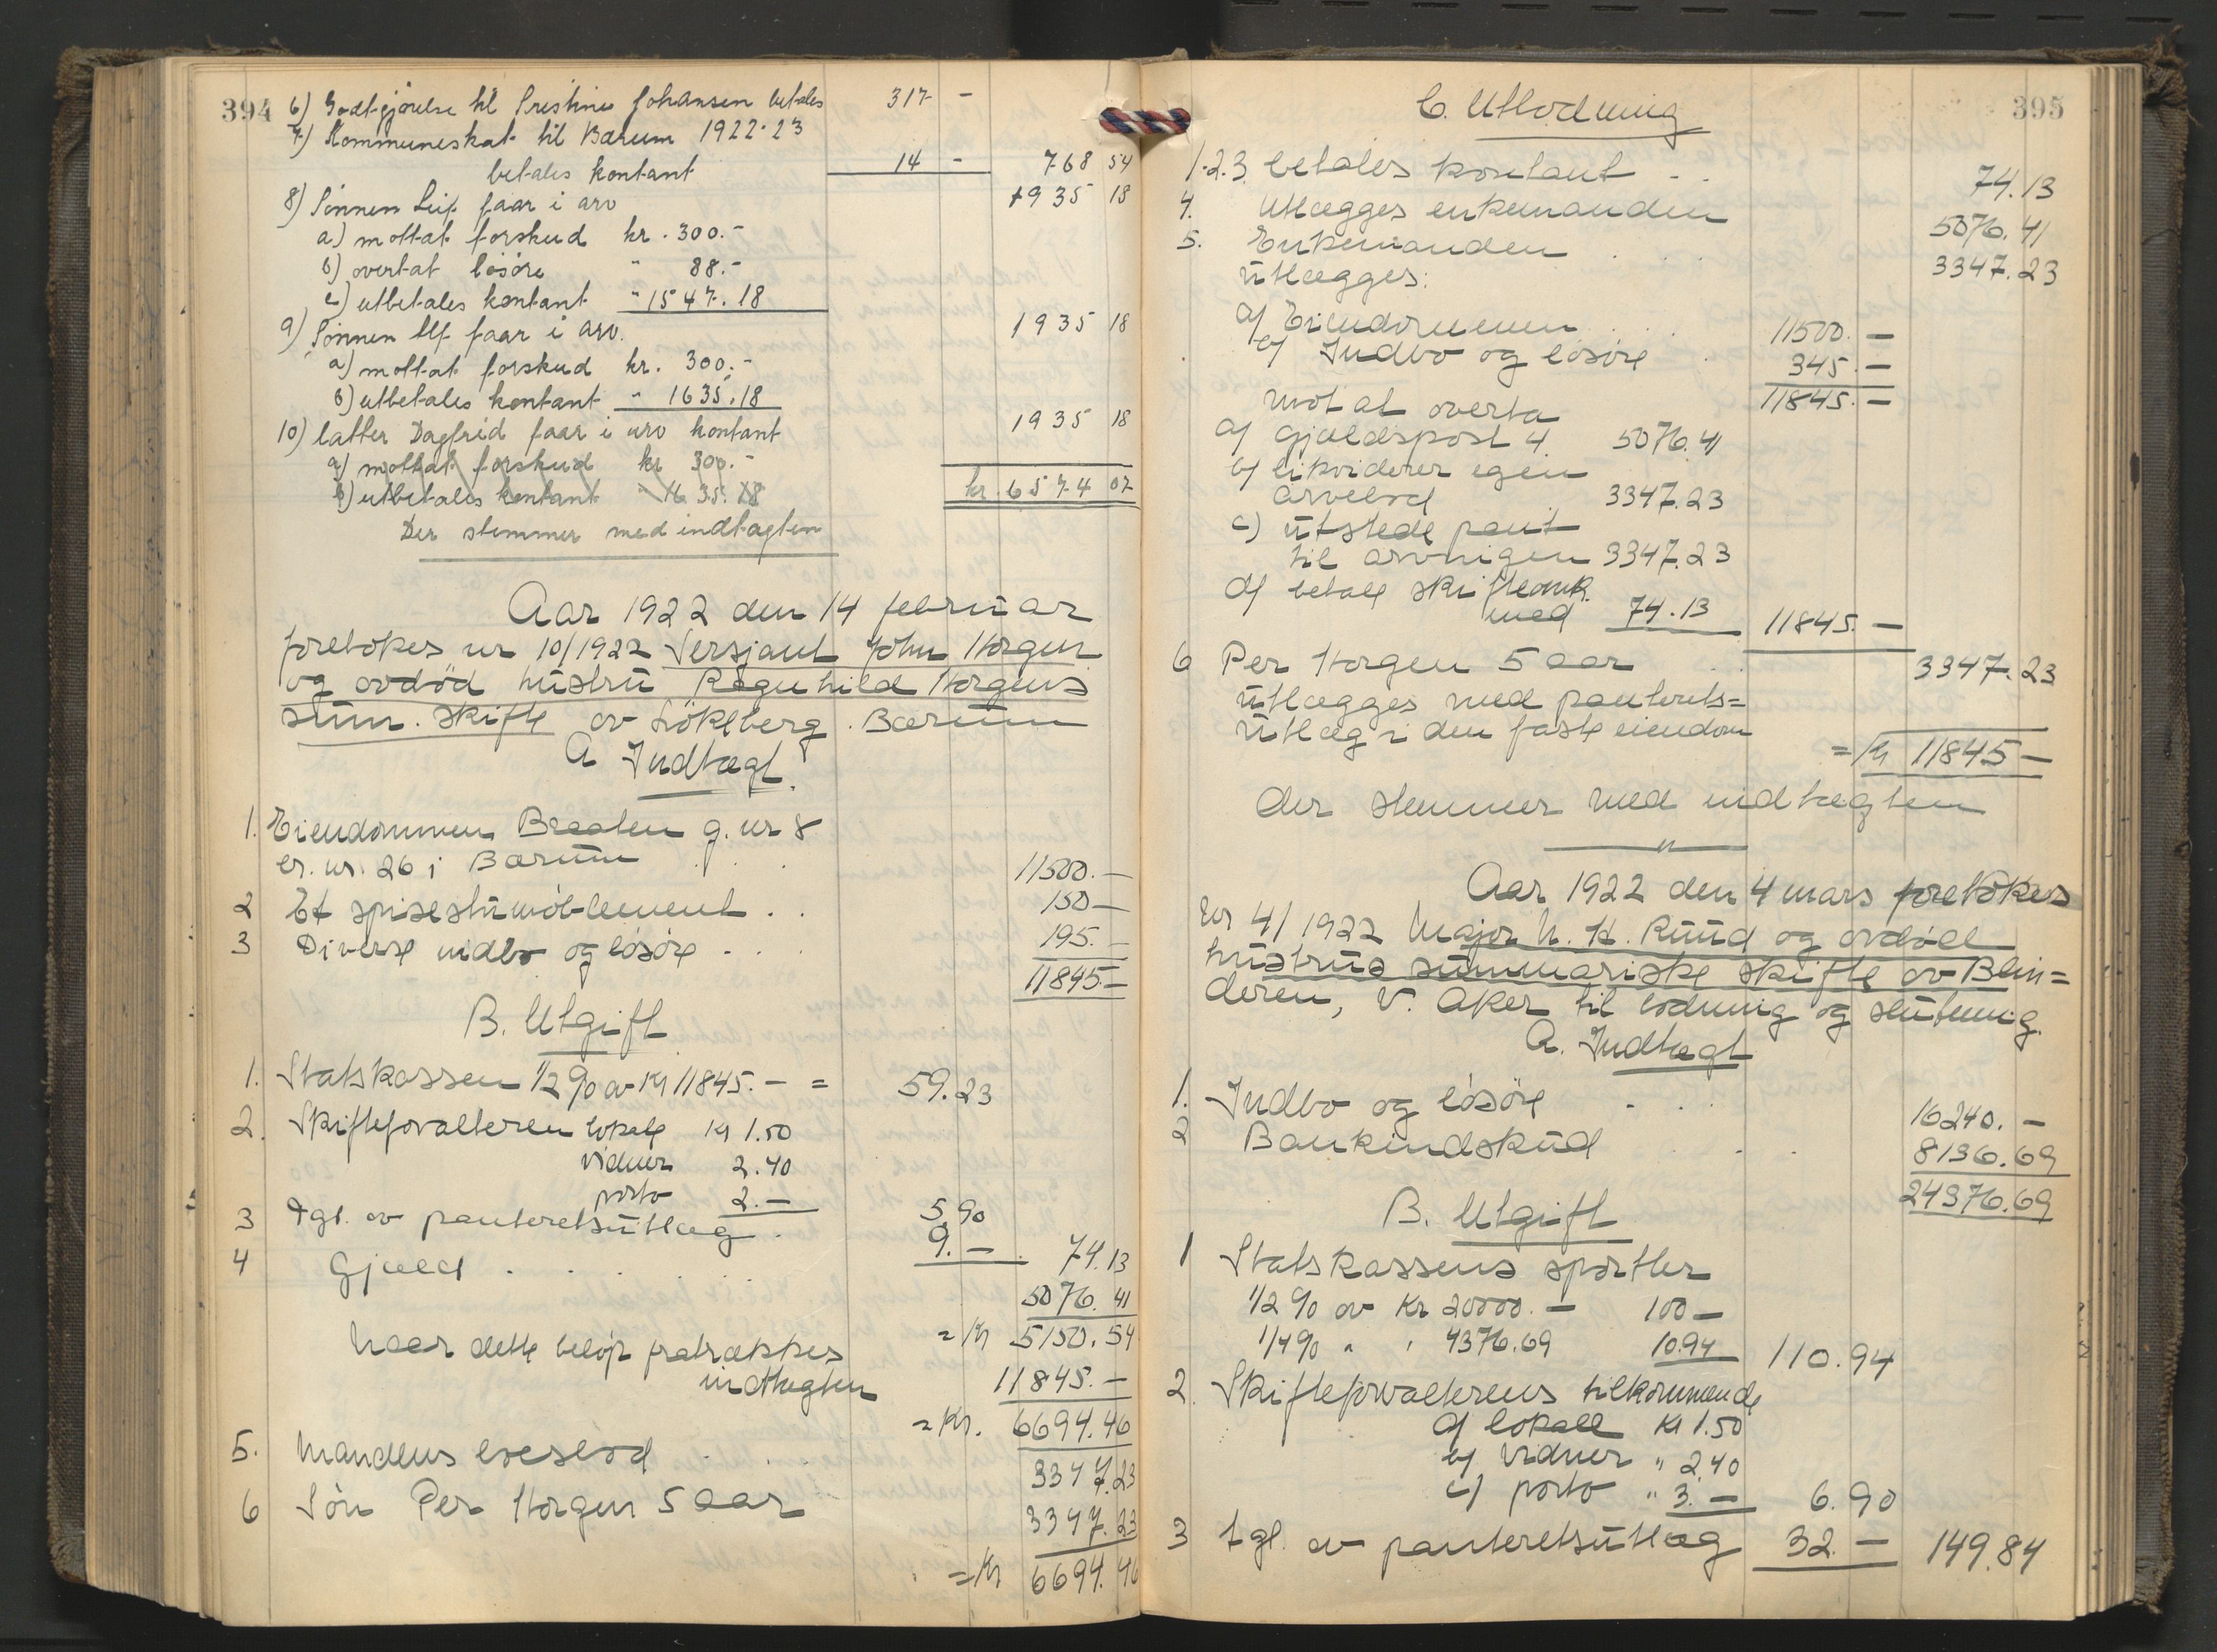 394
6) Godtgjörelse til Kristine Johansen betales 317 -
7) Kommuneskat til Bærum 1922-23
betales kontant 14 - 768 54
8) Sönnen Leif faar i arv 1935 18
a) mottat forskud kr. 300.-
b) overtat lösöre " 88.-
c) utbetales kontant " 1547.18
9) Sönnen Ulf faar i arv. 1935 18
a) mottat forskud kr. 300.-
b) utbetales kontant " 1635.18
10) Datter Dagfrid faar i arv kontant 1935 18
a) mottat forskud kr 300.-
b) utbetales kontant " 1635.18 kr. 6574 07
Der stemmer med indtægten
Aar 1922 den 14 februar
foretokes nr 10/1922 Versjant John Horgen
og avdöd hustru Ragnhild Horgens
sum. skifte av Lökeberg. Bærum
A Indtægt.
1. Eiendommen Braaten g. nr 8
br. nr. 26 i Bærum . . . 11500.-
2 Et spisestumöblement . . 150-
3 Diverse indbo og lösöre . . . 195.-
11845.-
B. Utgift
1. Statskassen 1/2 % av Kr 11845.- = 59.23
2. Skifteforvalteren lokale Kr 1.50
vidner 2.40
porto 2.- 5.90
3 Tgl. av panteretsutlæg . 9.- . 74.13
4 Gjæld . . . . . . 5076.41
= Kr 5150.54
Naar dette belöp fratrækkes
indtægten 11845.-
= Kr. 6694.46
5. Mandens boeslod . . 3347.23
6 Sön Per Horgen 5 aar 3347.23
= Kr 6694.46
395
C. Utlodning
1.2.3. betales kontant . . 74.13
4. Utlægges enkemanden 5076.41
5. Enkemanden . . . 3347.23
utlægges:
a) Eiendommen . . . 11500.-
b) Indbo og lösöre . 345.-
11845.-
mot at overta
a) Gjældspost 4 5076.41
b) likviderer egen
arvelod 3347.23
c) utstede pant
til arvingen 3347.23
d) betale skifteomk.
med 74.13 11845.-
6 Per Horgen 5 aar . . 3347.23
utlægges med panterets=
utlæg i den faste eiendom
= Kr 11845-
der stemmer med indtægten
"
Aar 1922 den 4 mars foretokes
nr 4/1922 Major N. K. Ruud og avdöde
hustrus summariske skifte av Blin=
deren, V. Aker til lodning og slutning.
A. Indtægt
1. Indbo og lösöre . . . 16240.-
2 Bankindskud . . . 8136.69
24376.69
B. Utgift
1 Statskassens sportler
1/2 % av Kr 20000.- 100-
1/4 % " " 4376.69 10.94 110.94
2. Skifteforvalterens tilkommende
a) lokale Kr 1.50
b) vidner " 2.40
c) porto " 3.- 6.90
3 Tgl. av panteretsutlæg 32.- 149.84